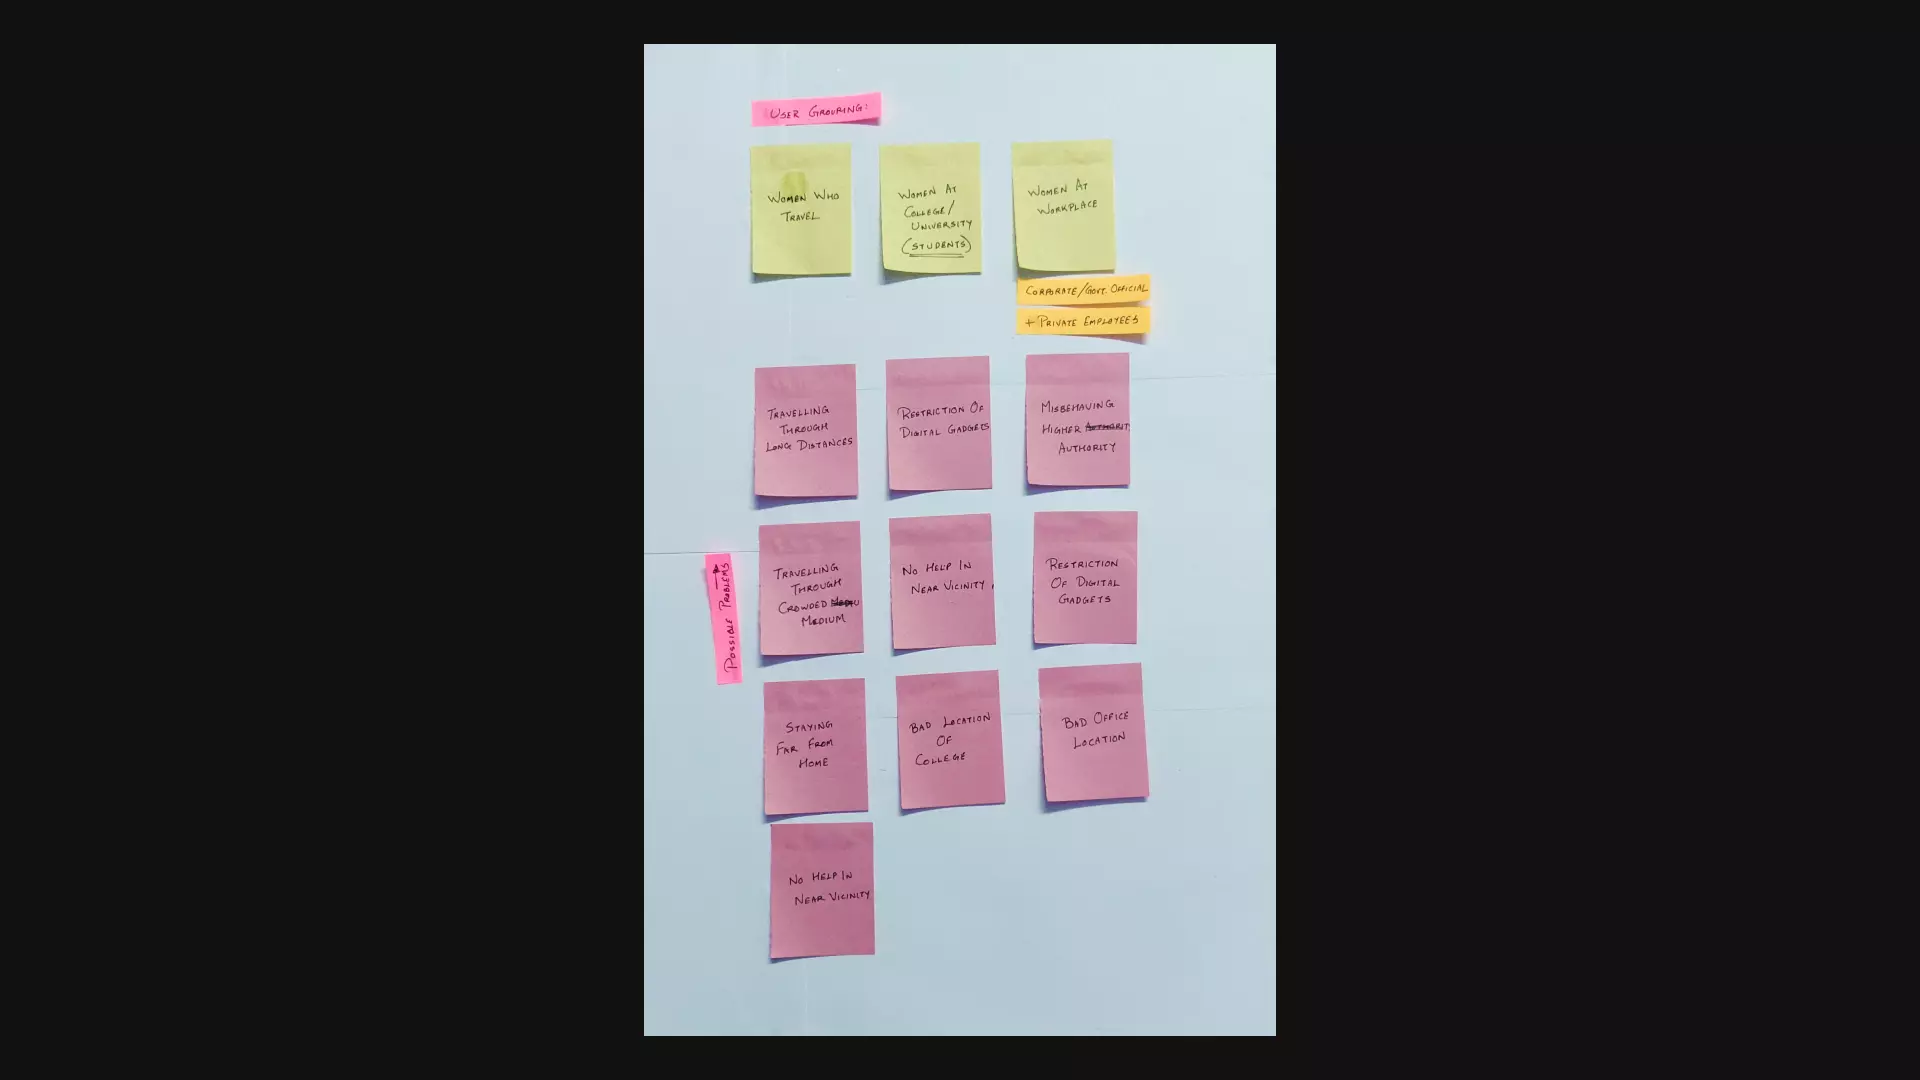 USER GROUPING:
WOMEN WHO
TRAVEL
WOMEN AT
COLLEGE/
UNIVERSITY
(STUDENTS)
WOMEN AT
WORKPLACE
CORPORATE/GOVT. OFFICIAL
+ PRIVATE EMPLOYEES
POSSIBLE PROBLEMS
TRAVELLING
THROUGH
LONG DISTANCES
RESTRICTION OF
DIGITAL GADGETS
MISBEHAVING
HIGHER
AUTHORITY
TRAVELLING
THROUGH
CROWDED
MEDIUM
NO HELP IN
NEAR VICINITY
RESTRICTION
OF DIGITAL
GADGETS
STAYING
FAR FROM
HOME
BAD LOCATION
OF
COLLEGE
BAD OFFICE
LOCATION
NO HELP IN
NEAR VICINITY